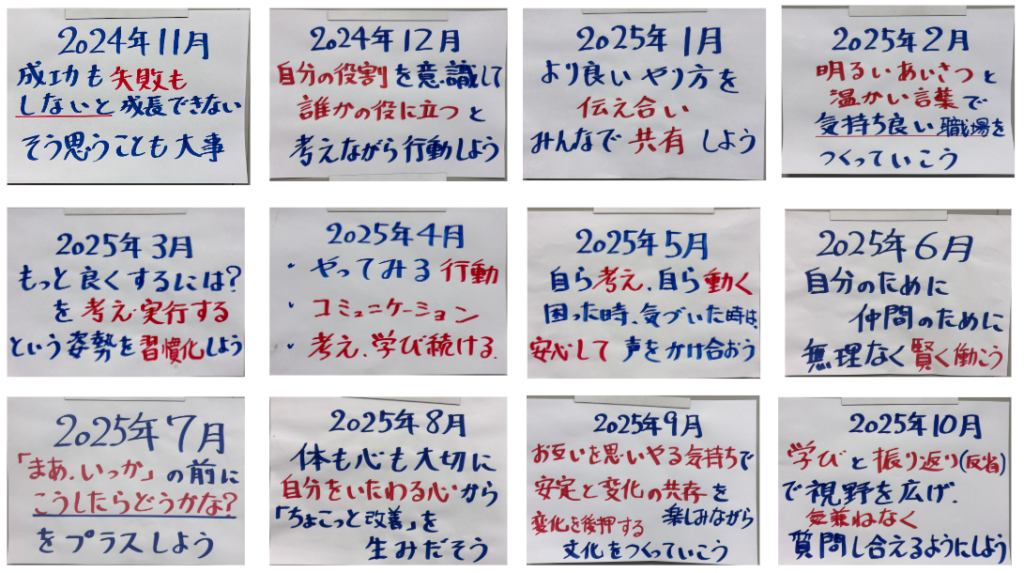 2024年11月
成功も失敗も
しないと成長できない
そう思うことも大事
2024年12月
自分の役割を意識して
誰かの役に立つと
考えながら行動しよう
2025年1月
より良いやり方を
伝え合い
みんなで共有しよう
2025年2月
明るいあいさつと
温かい言葉で
気持ち良い職場を
つくっていこう
2025年3月
もっと良くするには?
を考え・実行する
という姿勢を習慣化しよう
2025年4月
・やってみる行動
・コミュニケーション
・考え、学び続ける.
2025年5月
自ら考え、自ら動く
困った時、気づいた時は、
安心して声をかけ合おう
2025年6月
自分のために
仲間のために
無理なく賢く働こう
2025年7月
「まあ、いっか」の前に
こうしたらどうかな?
をプラスしよう
2025年8月
体も心も大切に
自分をいたわる心から
「ちょこっと改善」を
生みだそう
2025年9月
お互いを思いやる気持ちで
安定と変化の共存を
変化を後押する 楽しみながら
文化をつくっていこう
2025年10月
学びと振り返り(反省)
で視野を広げ、
気兼ねなく
質問し合えるようにしよう